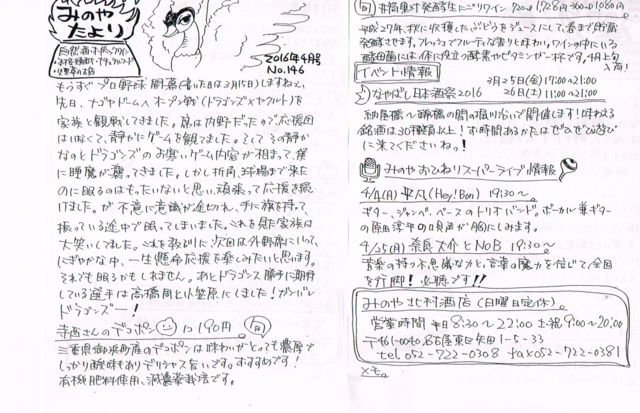 みのや
たより
自然酒・本格ワイン
2016年4月号
No.146
もうすぐプロ野球開幕(書いた日は3月15日)しますねえ
先日、ナゴヤドームへオープン戦(ドラゴンズ×ヤクルト)を
家族と観戦してました。席は内野だったので応援団
はいなくて、静かにゲームを観てました。そしてその静か
なのとドラゴンズのお寒いゲーム内容が相まって、僕
に睡魔が襲ってきました。しかし折角、球場まで来た
のに眠るのはもったいないと思い、頑張って応援を続
けました。が不意に意識が途切れ、手に旗を持って
振っている途中で眠ってしまいました。これを見た家族は
大笑いしてました。これを教訓に次回は外野席にいって、
にぎやかな中、一生懸命応援を楽しみたいと思います。
それでも眠るかもしれません。あとドラゴンズ勝手に期待
している選手は高橋周と小笠原にしました!ガンバレ
ドラゴンズー!
寺西さんのデコポン 1コ190円。 旬
三重県御浜町産のデコポンは味わいがとっても濃厚で
しっかり酸味もありデリシャス旨いです。おすすめです!
有機肥料使用、減農薬栽培です。
旬 井筒巣ごもり発酵生にごりワイン 720ml 1,728円 360ml 1,080円
平成27年、秋に収穫したぶどうをジュースにして、春まで貯蔵
発酵させます。フレッシュでフルーティな香りと味わり。ワインの中にいる
酵母菌には体に役立つ酵素やビタミンが一杯です。4月上旬
入荷!
イベント情報
3月25日(金)17:00〜21:00
なやばし日本酒祭2016 26日(土)11:00〜21:00
納屋橋〜錦橋の間の堀川沿いで開催します!味わえる
銘酒は30種類以上!お時間あるかたはぜひぜひお遊び
に来てくださいねっ!
みのや おひねりスーパーライブ情報
4/4(月) 平凡(Hey!Bon) 19:30〜
ギター、ジャンベ、ベースのトリオバンド。ボーカル兼ギター
の原田淳平の口負声が胸にしみます。
4/25(月) 奈良大介とNOB 19:30〜
音楽の持つ不思議な力と、言葉の魔力を信じて、全国
を行脚!必聴です!!
みのや北村酒店(日曜日定休)。
営業時間 平日8:30〜22:00 土・祝9:00〜20:00
〒461-0040 名古屋東区矢田1-5-33
tel 052-722-0308 fax 052-722-0381